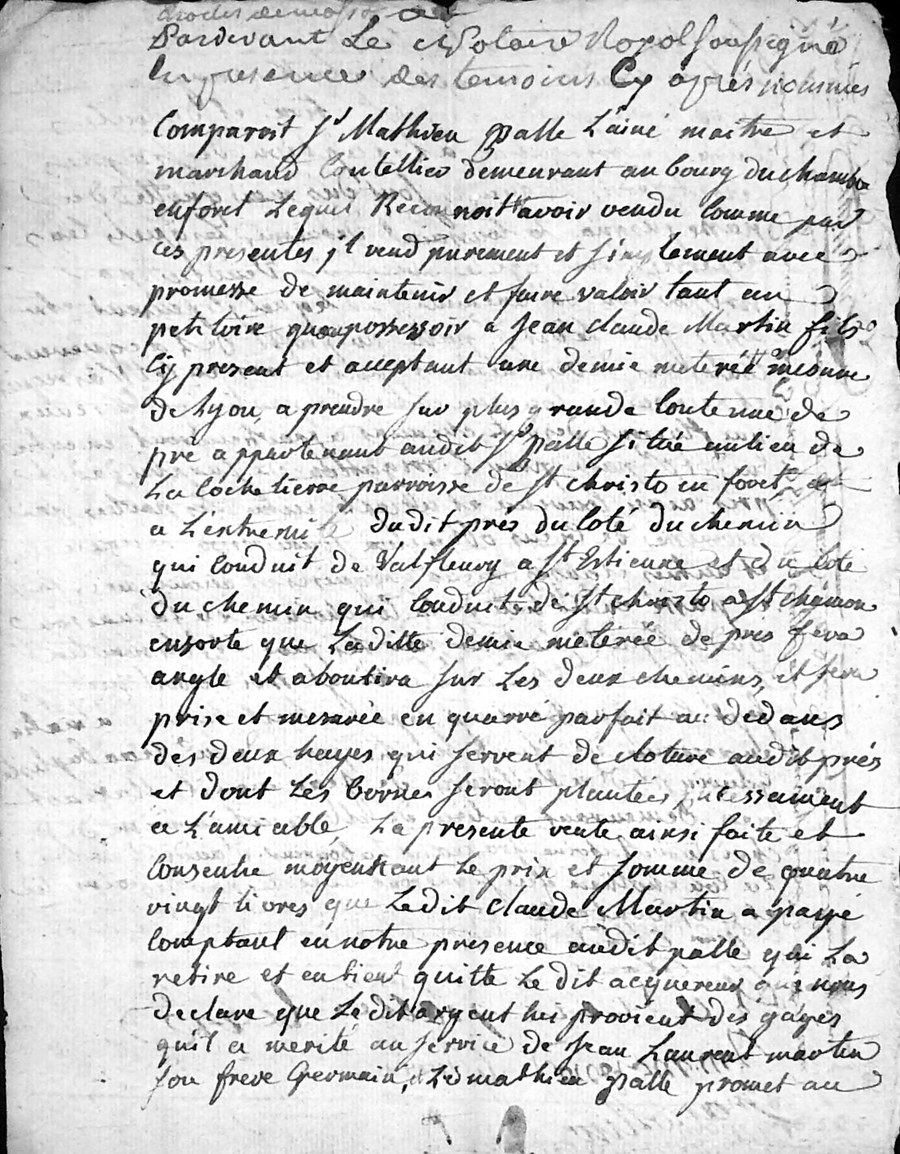 Pardevant Le Notaire Royol soussigné
En presence des temoins Cy aprés nommés
Comparoit Sr Mathieu palle L'ainé maitre et
marchand Coutellier demeurant au bourg du chambon
enforet Lequel Reconnoit avoir vendu Comme par
ces presentes jl vend purement et simplement avec
promesse de maintenir et faire valoir tant au
petitoire qu'au possessoir a jean claude Martin fils
Cy present et acceptant une demie meterée mesure
de Lyon, a prendre sur plus grande Contenue de
pré appartenant audit Sr palle situé au lieu de
La Cochetiere parroisse de St christo en foret
a L'extremité dudit prés du Coté du chemin
qui conduit de Valfleury a St Estienne et du Coté
Du chemin qui Conduit de St christo a St chamon
ensorte que Laditte demie meterée de prés fera
angle et aboutira sur Les deux chemins, et sera
prise et mesurée en quarré parfait au dedans
des deux hayes qui servent de cloture audit prés
et dont Les bornes seront plantées incessament
a L'amiable, La presente vente ainsi faite et
Consentie moyennant Le prix et somme de quatre
vingt Livres que Ledit Claude Martin a payé
Comptant en notre presence audit palle qui La
retire et en tient quitte Le dit acquereur qui nous
declare que Ledit argent lui provient des gages
qu'il a merité au service de jean Laurent martin
son frere Germain, Le mathieu palle promet au